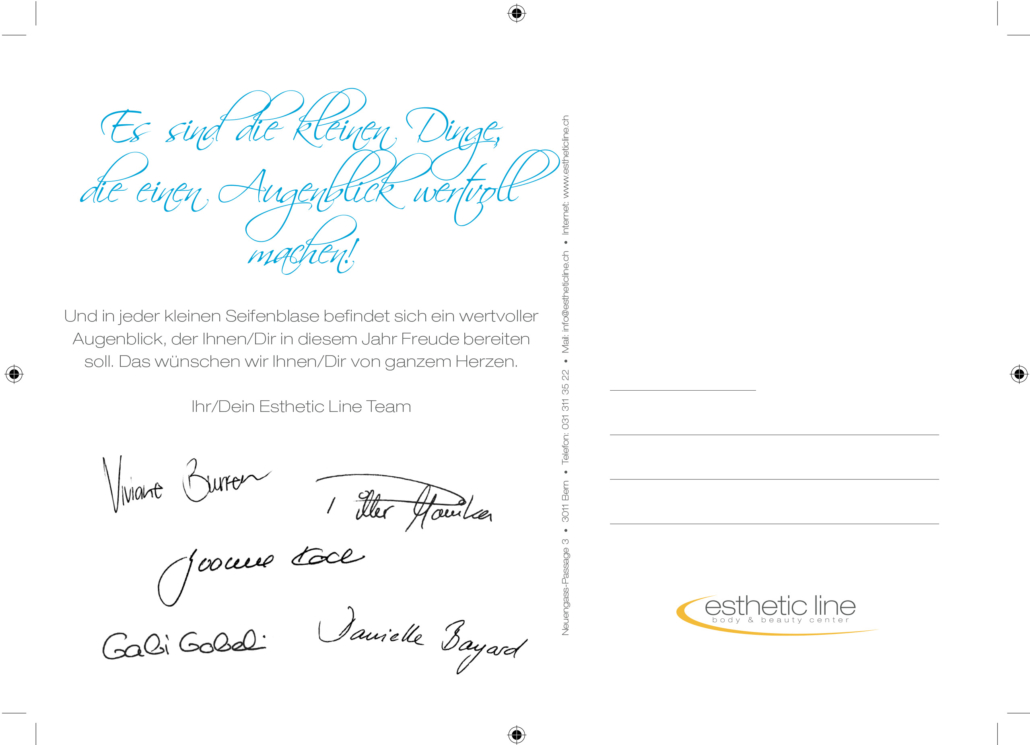 Es sind die kleinen Dinge,
die einen Augenblick wertvoll
machen!
Und in jeder kleinen Seifenblase befindet sich ein wertvoller
Augenblick, der Ihnen/Dir in diesem Jahr Freude bereiten
soll. Das wünschen wir Ihnen/Dir von ganzem Herzen.
Ihr/Dein Esthetic Line Team
Viviane Burren
Gabi Gobeli
Danielle Bayard
Neuengass-Passage 3 • 3011 Bern • Telefon: 031 311 35 22 • Mail: info@estheticline.ch • Internet: www.estheticline.ch
esthetic line
body & beauty center